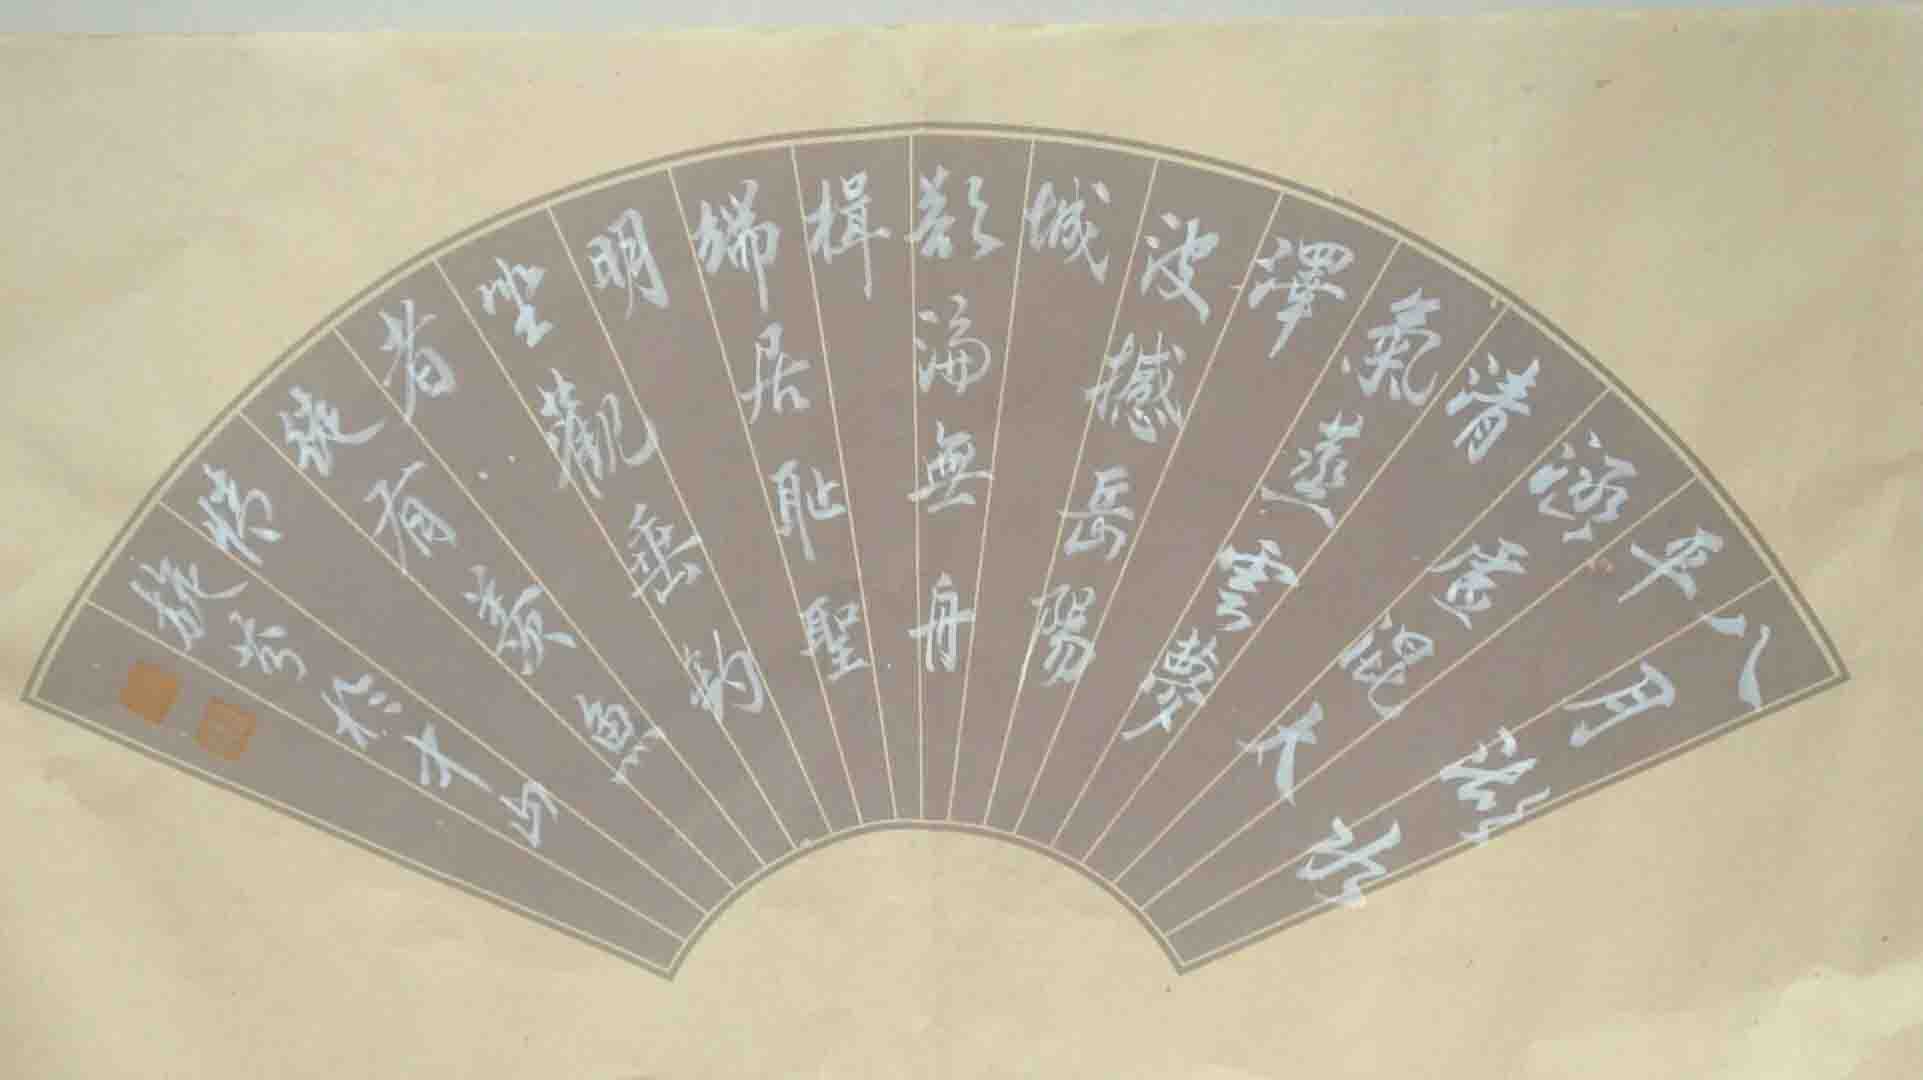 八月湖水
平
涵虛混太
清
氣蒸雲夢
澤
波撼岳陽
城
欲濟無舟
楫
端居耻聖
明
坐觀垂釣
者
徒有羨魚
情